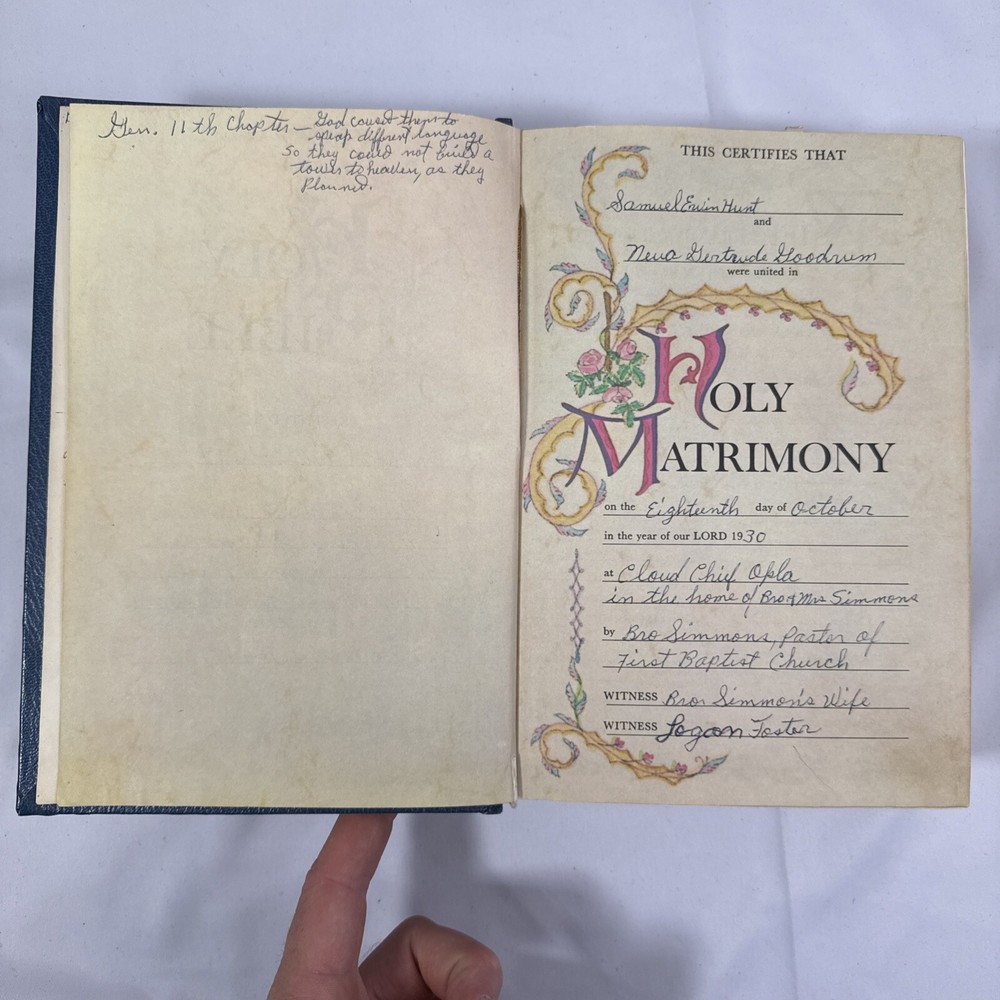 Gen. 11th Chapter — God caused them to
speap diffrent language
So they could not build a
tower to heaven, as they
Planned.
THIS CERTIFIES THAT
Samuel Erwin Hunt
and
Neva Gertrude Goodrum
were united in
HOLY
MATRIMONY
on the Eighteenth day of October
in the year of our LORD 1930
at Cloud Chief Okla
in the home of Bro & Mrs Simmons
by Bro Simmons, Pastor of
First Baptist Church
WITNESS Bro Simmon's Wife
WITNESS Logan Foster